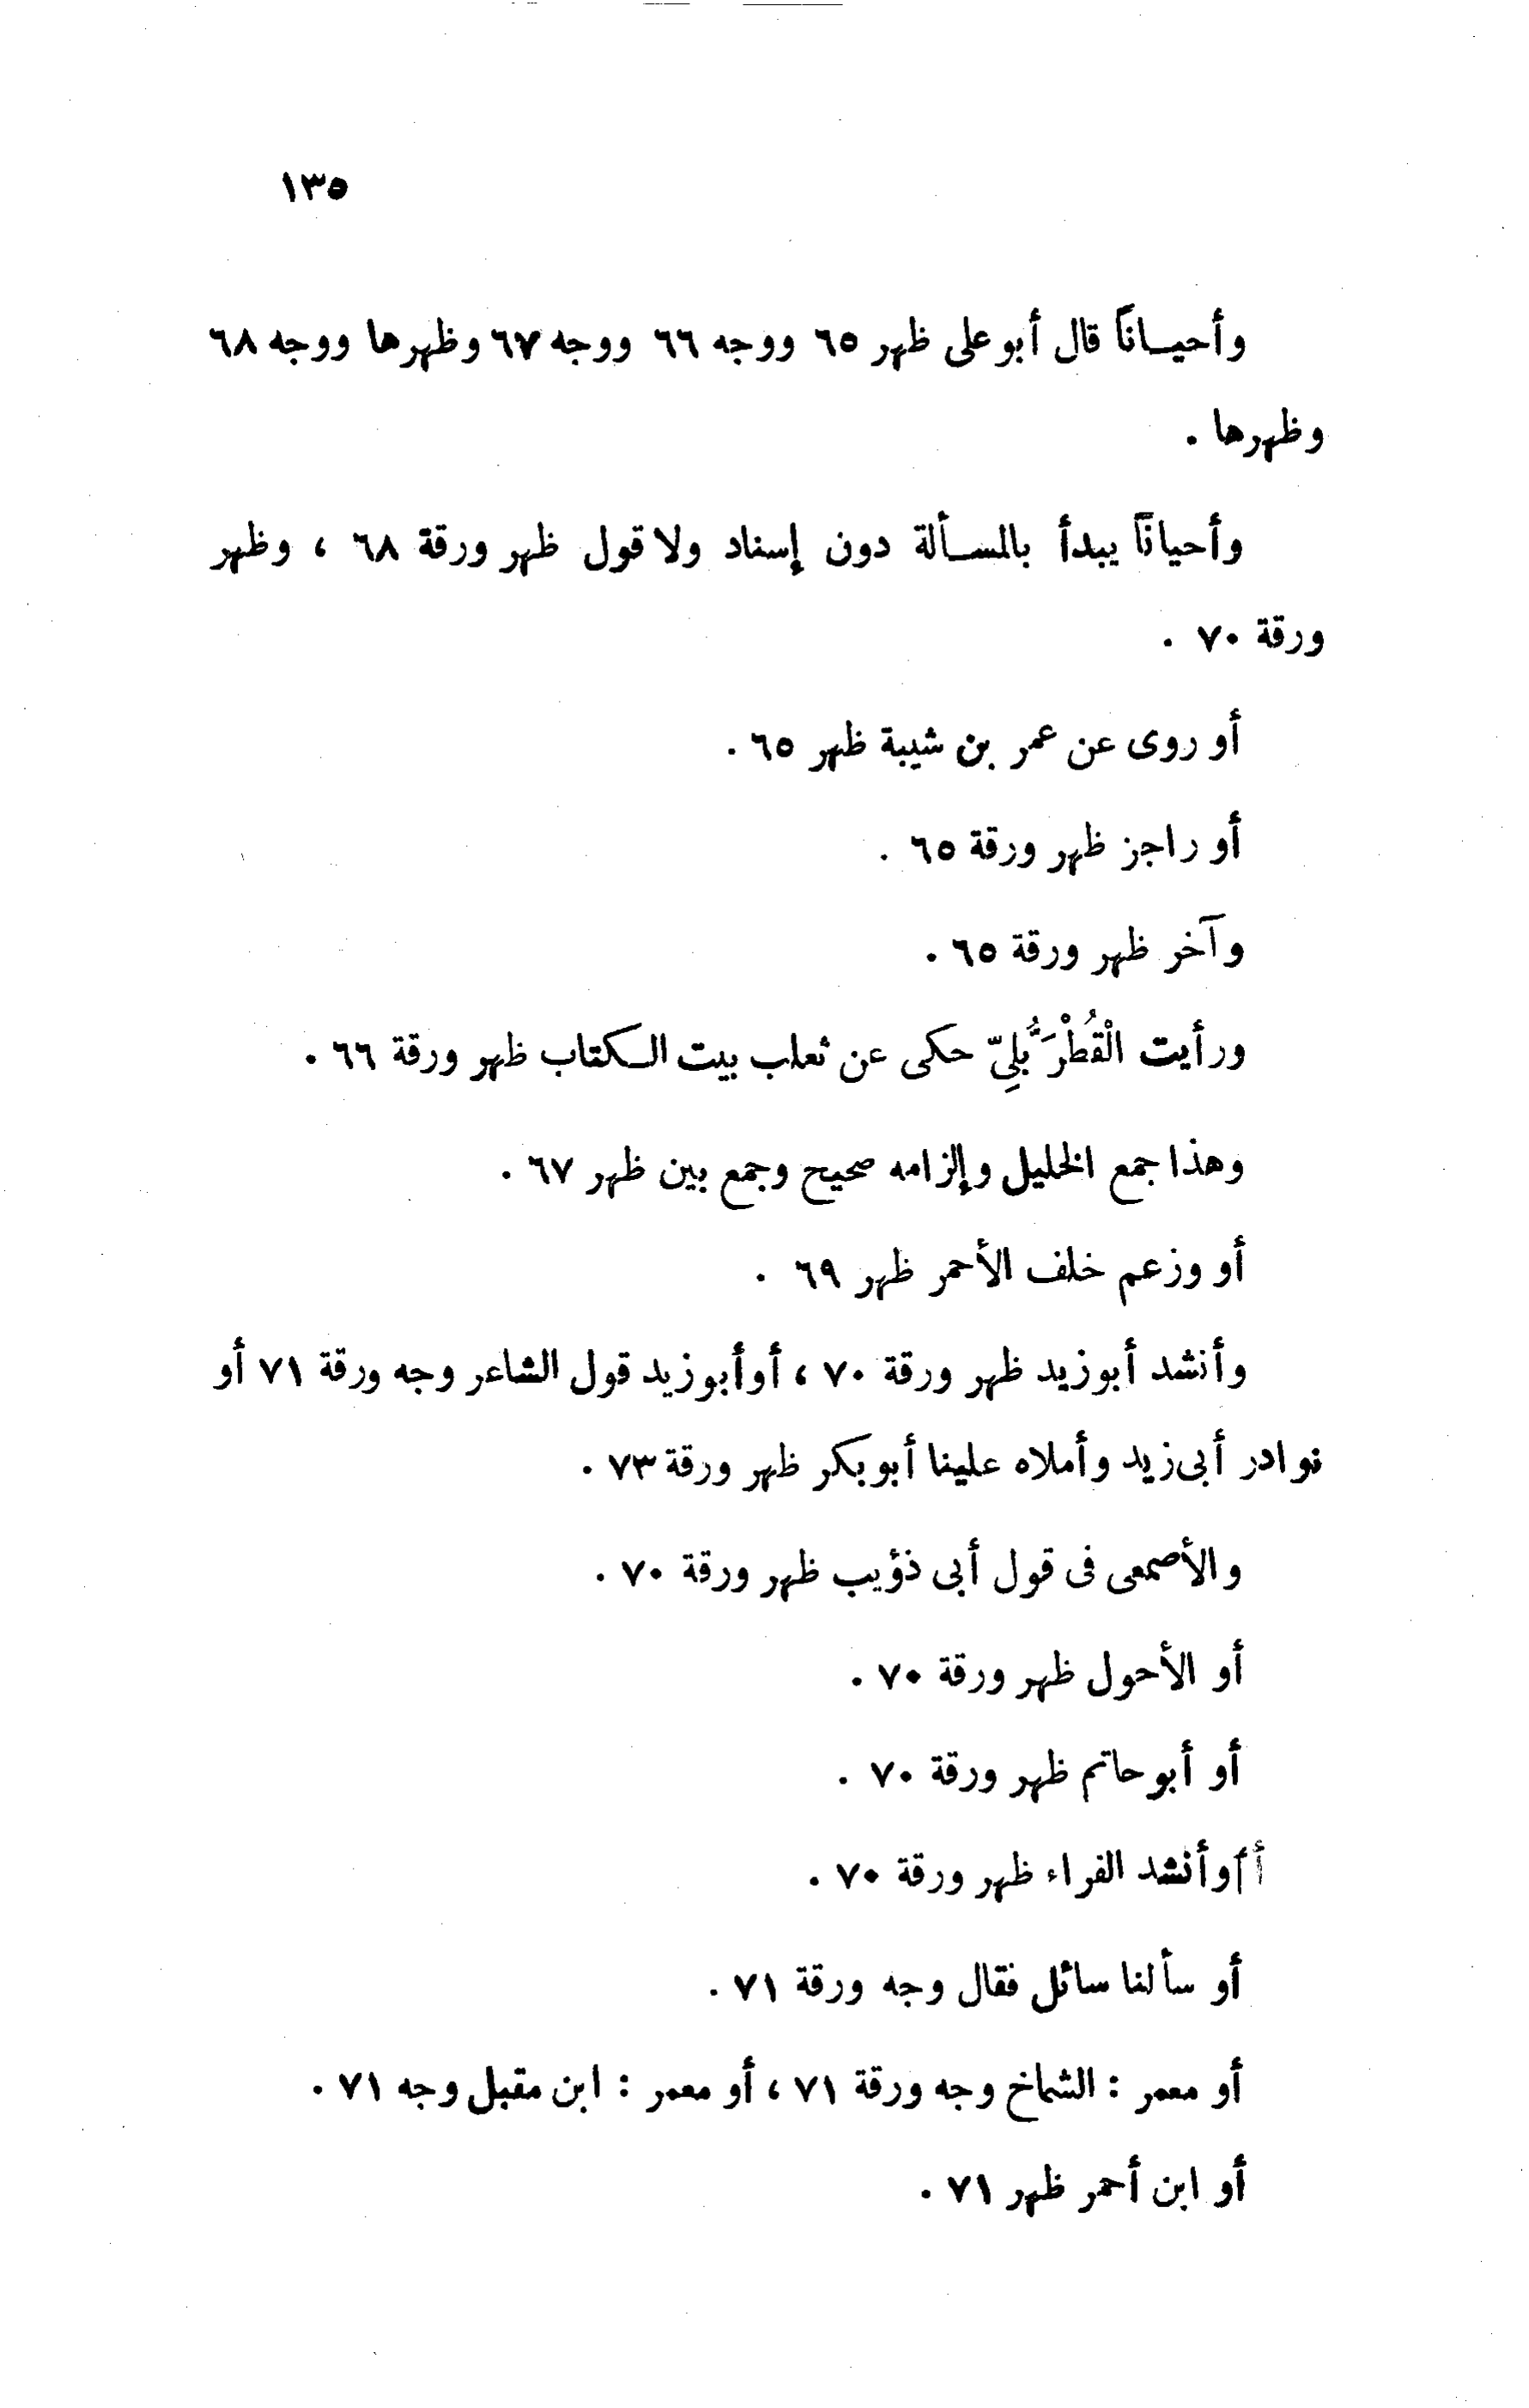 ١٣٥
وأحيـانًا قال أبو على ظهر ٦٥ ووجه ٦٦ ووجه ٦٧ وظهرها ووجه ٦٨
وظهرها .
وأحيانًا يبدأ بالمسـألة دون إسناد ولا قول ظهر ورقة ٦٨ ، وظهر
ورقة ٧٠ .
أو روى عن عمر بن شيبة ظهر ٦٥ .
أو راجز ظهر ورقة ٦٥ .
وآخر ظهر ورقة ٦٥ .
ورأيت الْقُطْرَبُّلِيّ حكى عن ثعلب بيت الـكتاب ظهر ورقة ٦٦ .
وهذا جمع الخليل وإلزامه صحيح وجمع بين ظهر ٦٧ .
أو وزعم خلف الأحمر ظهر ٦٩ .
وأنشد أبو زيد ظهر ورقة ٧٠ ، أو أبو زيد قول الشاعر وجه ورقة ٧١ أو
نوادر أبى زيد وأملاه علينا أبو بكر ظهر ورقة ٧٣ .
والأصمعى فى قول أبى ذؤيب ظهر ورقة ٧٠ .
أو الأحول ظهر ورقة ٧٠ .
أو أبو حاتم ظهر ورقة ٧٠ .
أ أو أنشد الفراء ظهر ورقة ٧٠ .
أو سألنا سائل فقال وجه ورقة ٧١ .
أو معمر : الشماخ وجه ورقة ٧١ ، أو معمر : ابن مقبل وجه ٧١ .
أو ابن أحمر ظهر ٧١ .